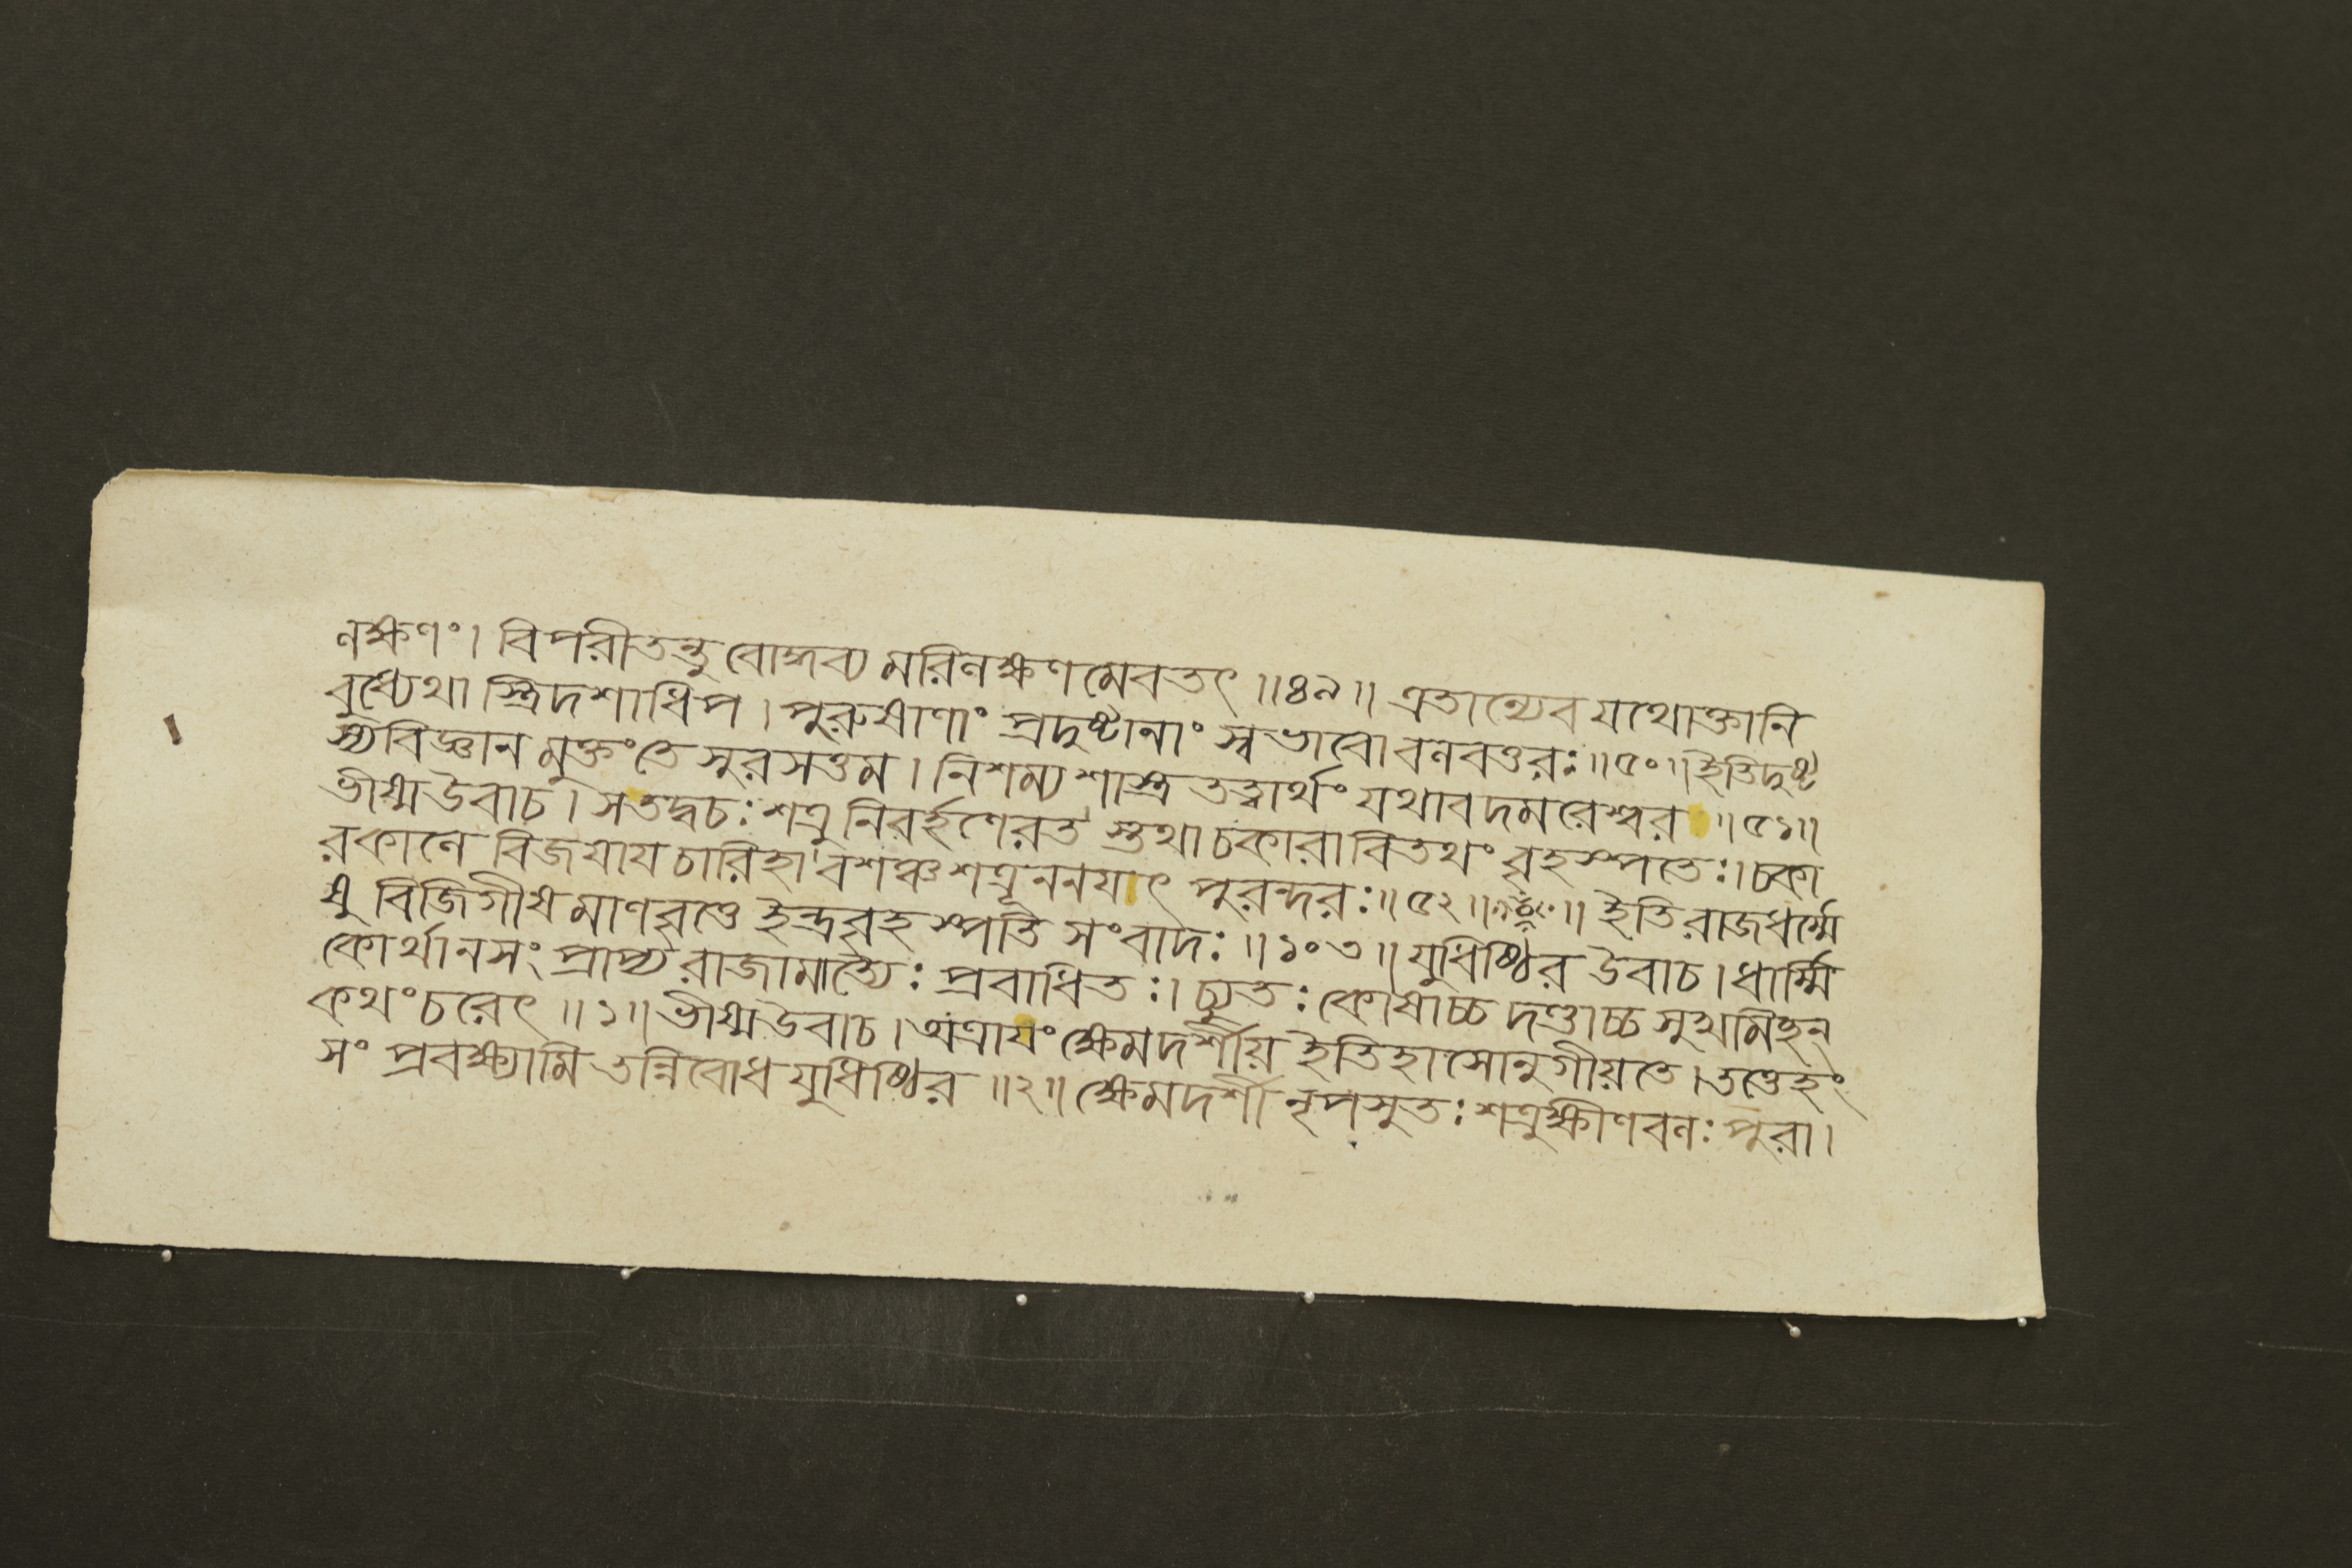 লক্ষণং। বিপরীতন্তু বোদ্ধব্য মরিলক্ষণ মেবতৎ ॥৪৯॥ এতান্যেব যথোক্তানি
বুধ্যেথা স্ত্রিদশাধিপ। পুরুষাণাং প্রদুষ্টানাং স্বভাবো বলবত্তরঃ ॥৫০॥ ইতিদুষ্ট
স্যবিজ্ঞান মুক্তংতে সুরসত্তম। নিশম্য শাস্ত্র তত্ত্বার্থং যথাবদমরেশ্বর ॥৫১॥
ভীষ্মউবাচ। সতদ্বচঃ শত্রু নিবর্হণেরত স্তথা চকারা বিতথং বৃহস্পতেঃ। চকা
রকালে বিজয়ায চারিহা বশঞ্চ শত্রূননযৎ পুরন্দরঃ॥৫২॥ ॥ ইতি রাজধর্ম্মে
ষু বিজিগীষমাণবৃত্তে ইন্দ্রবৃহস্পতি সংবাদঃ ॥১০৩॥ যুধিষ্ঠির উবাচ। ধার্ম্মি
কোর্থানসং প্রাপ্য রাজামাত্যৈঃ প্রবাধিতঃ। চ্যুতঃ কোষাচ্চ দণ্ডাচ্চ সুখমিছন্
কথংচরেৎ ॥১॥ ভীষ্মউবাচ। অত্রাযং ক্ষেমদর্শীয় ইতিহাসোনুগীয়তে। তত্তেহং
সং প্রবক্ষ্যামি তন্নিবোধ যুধিষ্ঠির ॥২॥ ক্ষেমদর্শী নৃপসুতঃ শত্রুক্ষীণবলঃ পুরা।